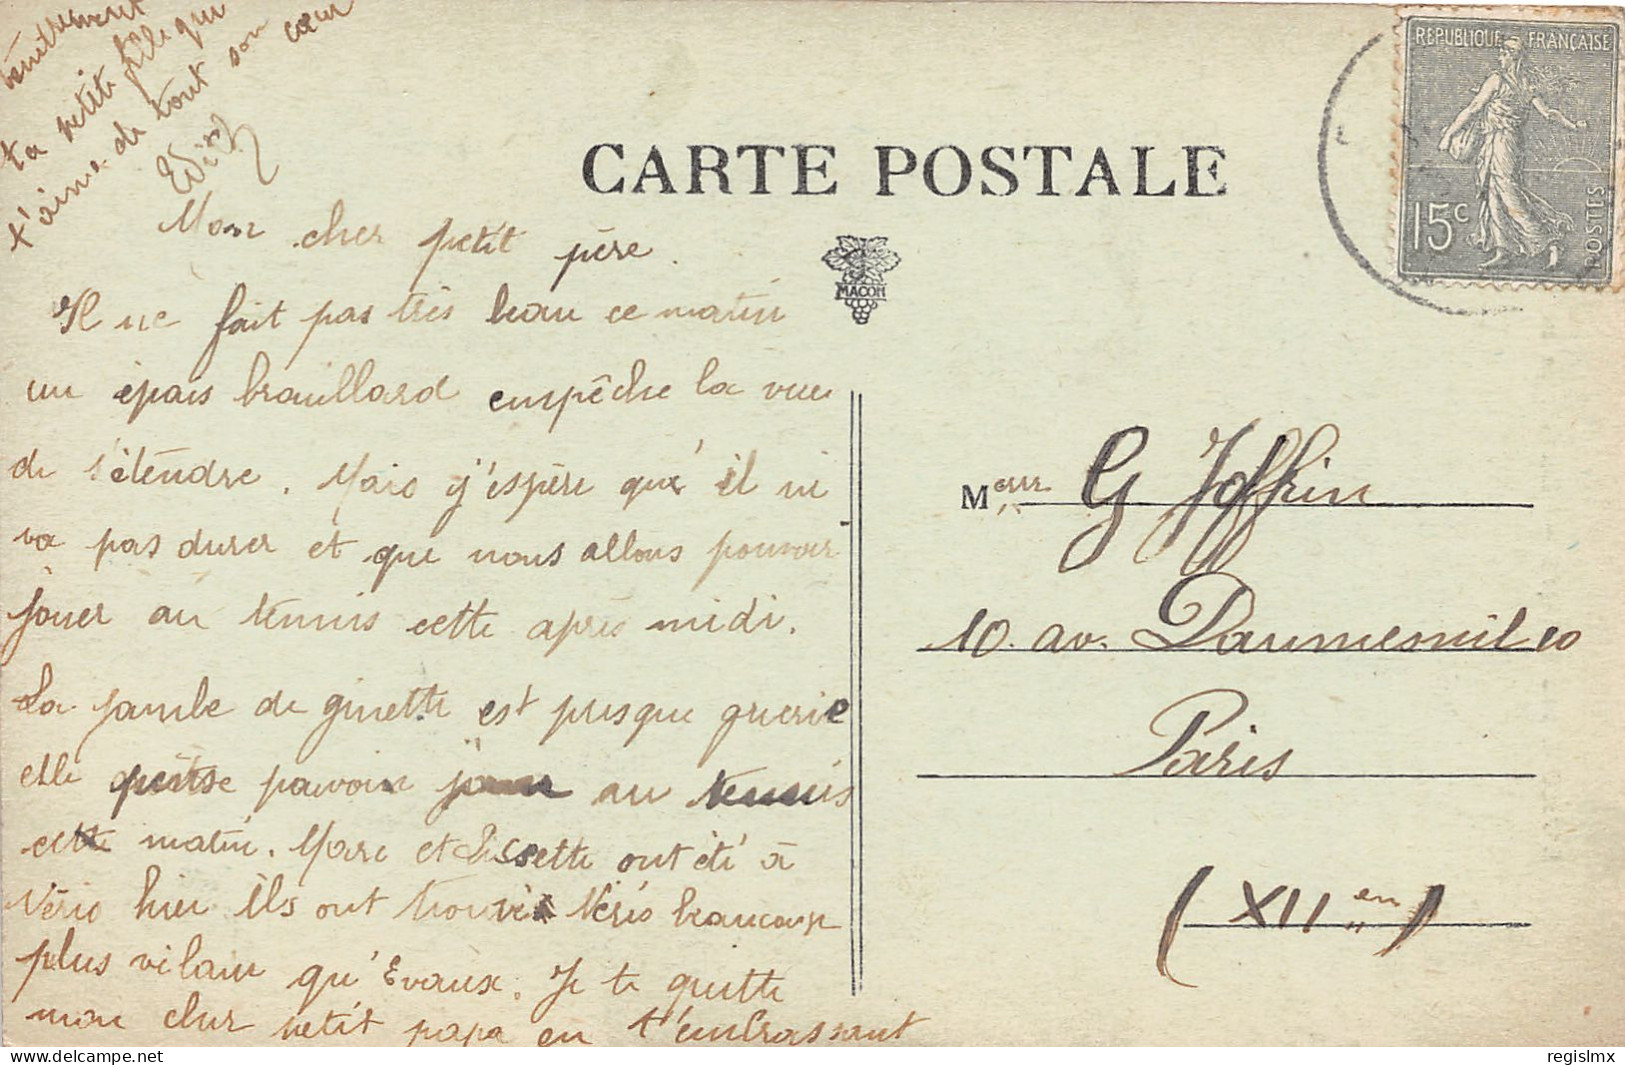 CARTE POSTALE
MACON
REPUBLIQUE FRANÇAISE
15c
POSTES
Mon cher petit père.
Il ne fait pas très beau ce matin
un épais brouillard empêche la vue
de s'étendre. Mais j'espère que il ne
va pas durer et que nous allons pouvoir
jouer au tennis cette après midi.
La jambe de ginette est presque guerie
elle pense pouvoir jouer au tennis
cette matin. Marc et Lissette ont été à
Néris hier ils ont trouvé Néris beaucoup
plus vilain qu'Evaux. Je te quitte
mon cher petit papa en t'embrassant
tendrement
ta petite fille qui
t'aime de tout son cœur
Meur G
10. av. Daumesnil 10
Paris
(XII en)
regislmx